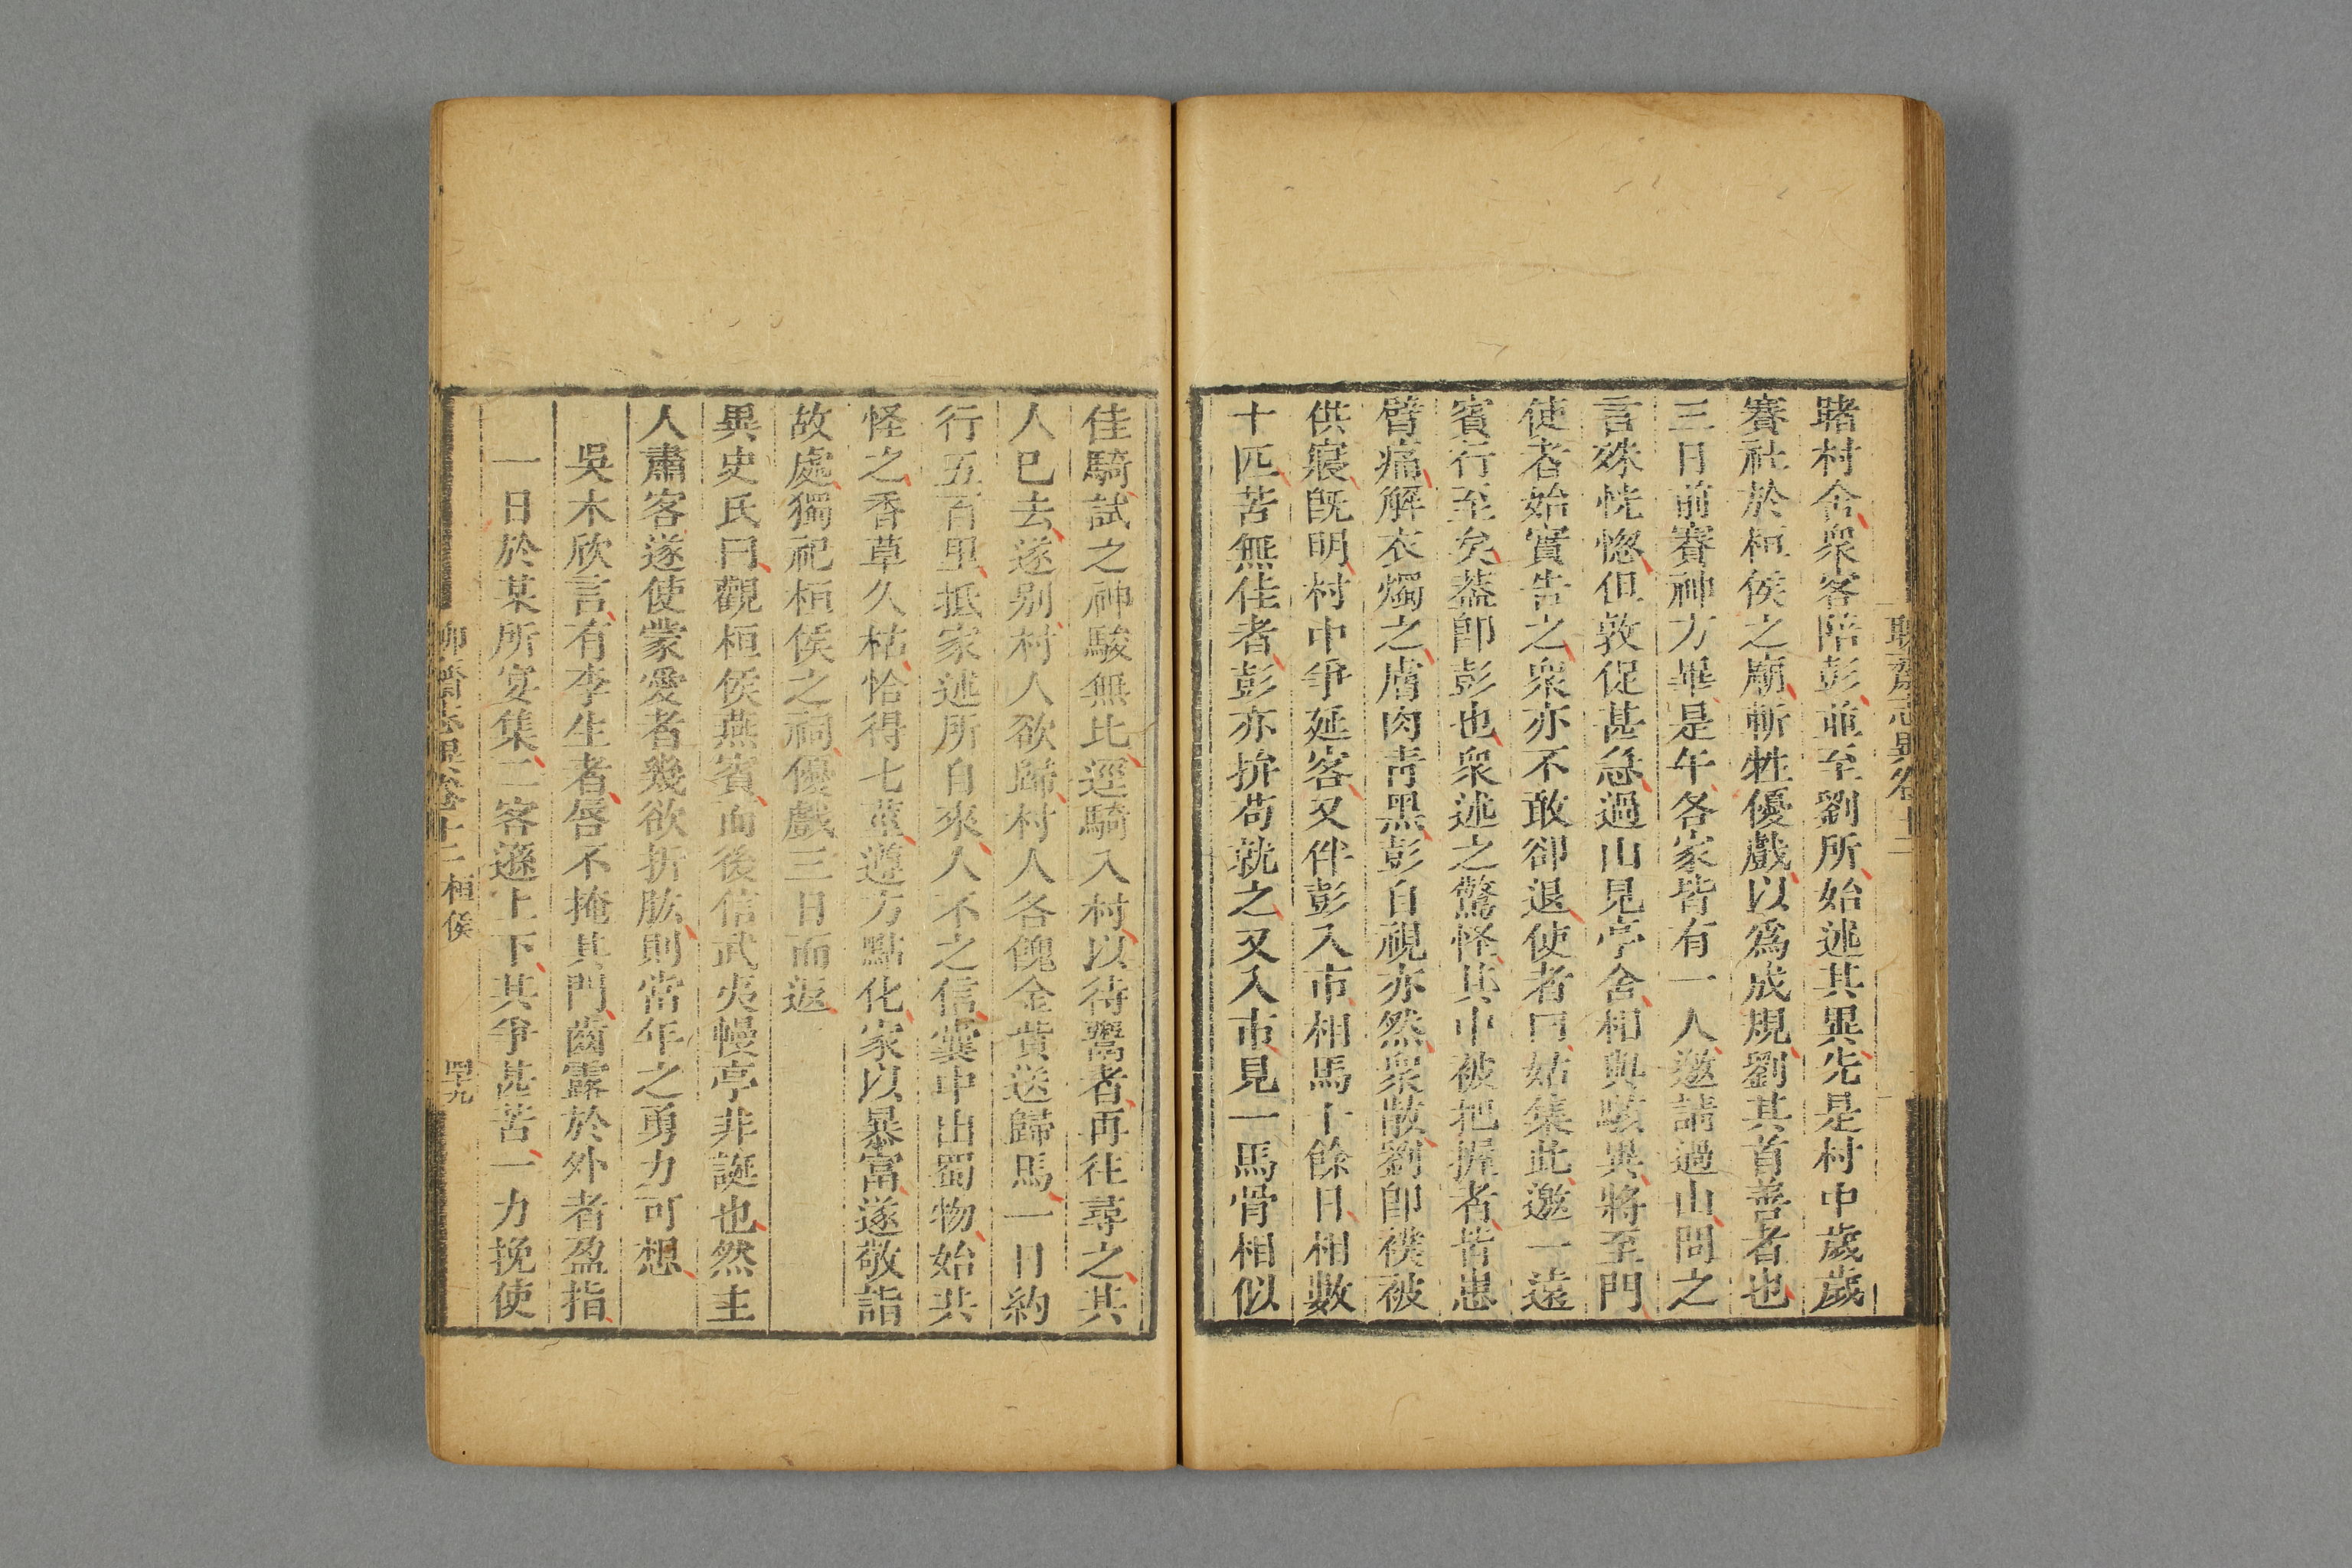 聊齋志異卷十二
賭村舍衆客陪彭並至劉所始述其異先是村中歲歲
賽社於桓侯之廟斬牲優戲以爲成規劉其首善者也
三日前賽神方畢是午各家皆有一人邀請過山問之
言殊恍惚但敦促甚急過山見亭舍相與駭異將至門
使者始實告之衆亦不敢卻退使者曰姑集此邀一遠
賓行至矣葢卽彭也衆述之驚怪其中被把握者皆患
臂痛解衣燭之膚肉靑黑彭自視亦然衆散劉卽襆被
供寢旣明村中爭延客又伴彭入市相馬十餘日相數
十匹苦無佳者彭亦拚苟就之又入市見一馬骨相似
佳騎試之神駿無比逕騎入村以待鬻者再往尋之其
人已去遂別村人欲歸村人各餽金貲送歸馬一日約
行五百里抵家述所自來人不之信囊中出蜀物始共
怪之香草久枯恰得七莖遵方點化家以暴富遂敬詣
故處獨祀桓侯之祠優戲三日而返
異史氏曰觀桓侯燕賓而後信武夷幔亭非誕也然主
人肅客遂使蒙愛者幾欲折肱則當年之勇力可想
吳木欣言有李生者唇不掩其門齒露於外者盈指
一日於某所宴集二客遜上下其爭甚苦一力挽使
聊齋志異卷十二 桓侯 四九